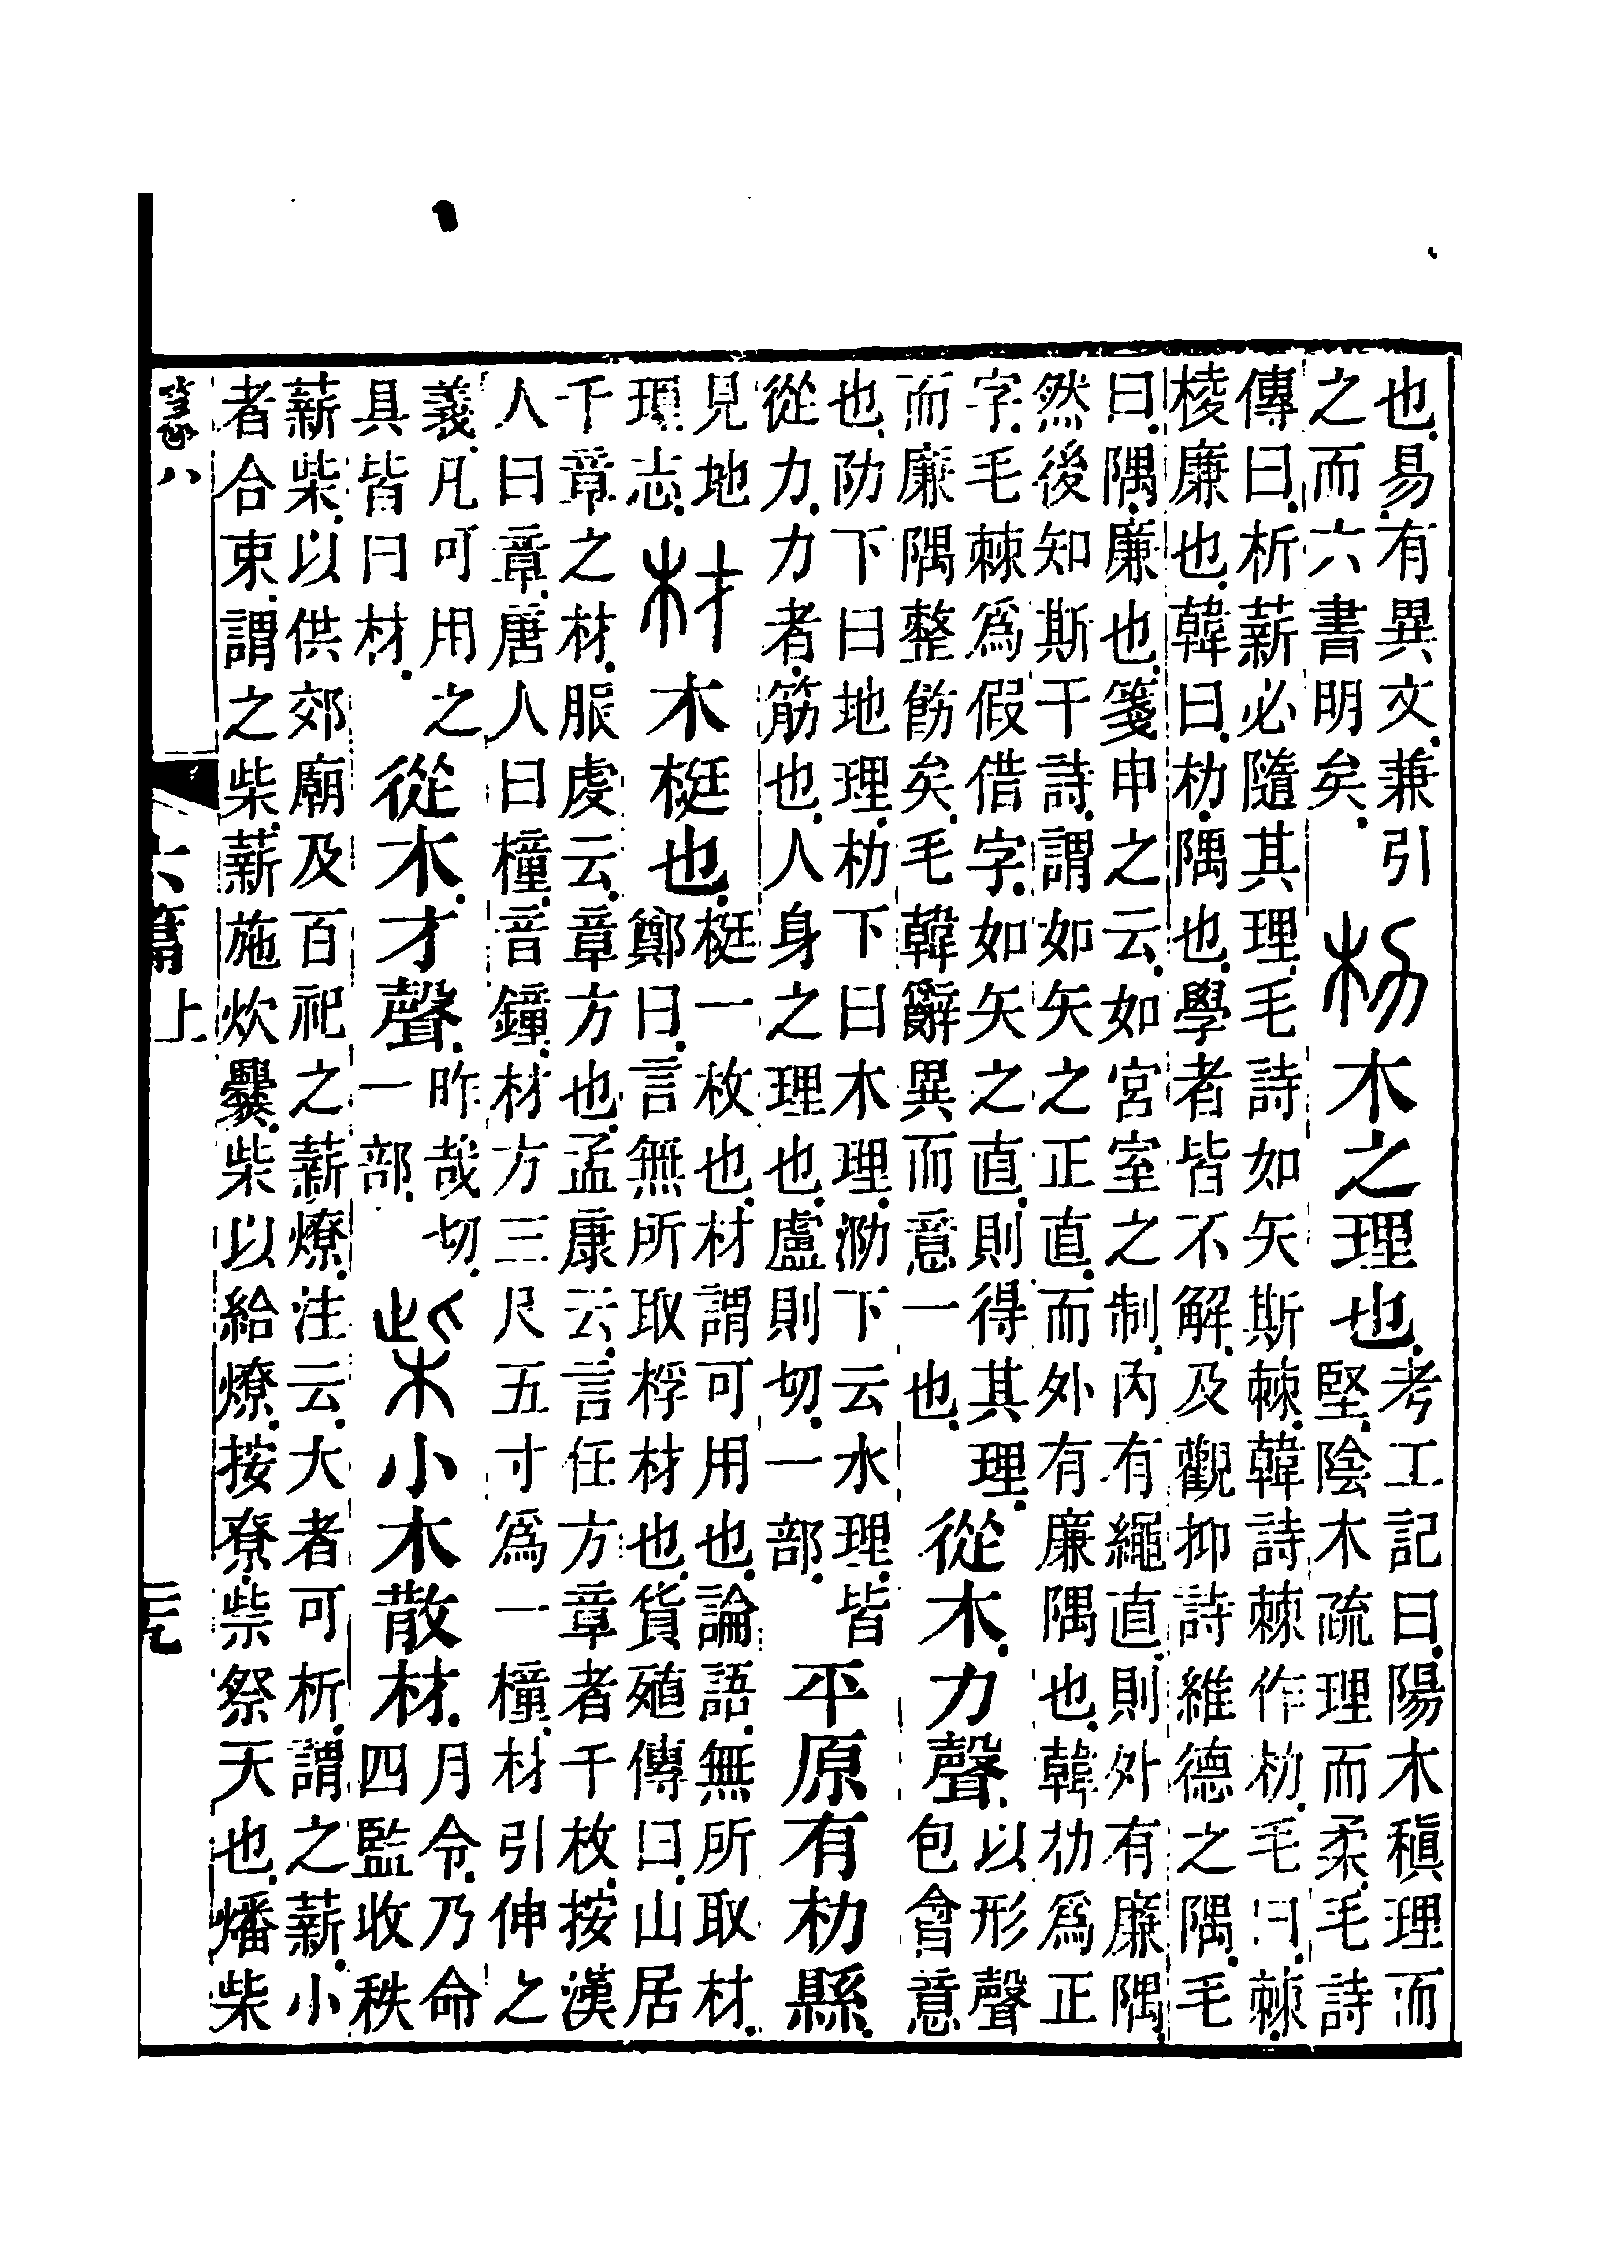 也易有異文兼引之而六書明矣朸木之理也考工記曰陽木稹理而堅陰木疏理而柔毛詩
傳曰析薪必隨其理毛詩如矢斯棘韓詩棘作朸毛曰棘
棱廉也韓曰朸隅也學者皆不解及觀抑詩維德之隅毛
曰隅廉也箋申之云如宮室之制內有繩直則外有廉隅
然後知斯干詩謂如矢之正直而外有廉隅也韓朸爲正
字毛棘爲假借字如矢之直則得其理而廉隅整飭矣毛韓辭異而意一也從木力聲以形聲包會意
也阞下曰地理朸下曰木理泐下云水理皆從力力者筋也人身之理也盧則切一部平原有朸縣
見地理志材木梃也梃一枚也材謂可用也論語無所取材鄭曰言無所取桴材也貨殖傳曰山居
千章之材服虔云章方也孟康云言任方章者千枚按漢
人曰章唐人曰橦音鐘材方三尺五寸爲一橦材引伸之
義凡可用之具皆曰材從木才聲昨哉切一部柴小木散材月令乃命四監收秩
薪柴以供郊廟及百祀之薪燎注云大者可析謂之薪小
者合束謂之柴薪施炊爨柴以給燎按尞柴祭天也燔柴
卷八
六篇上